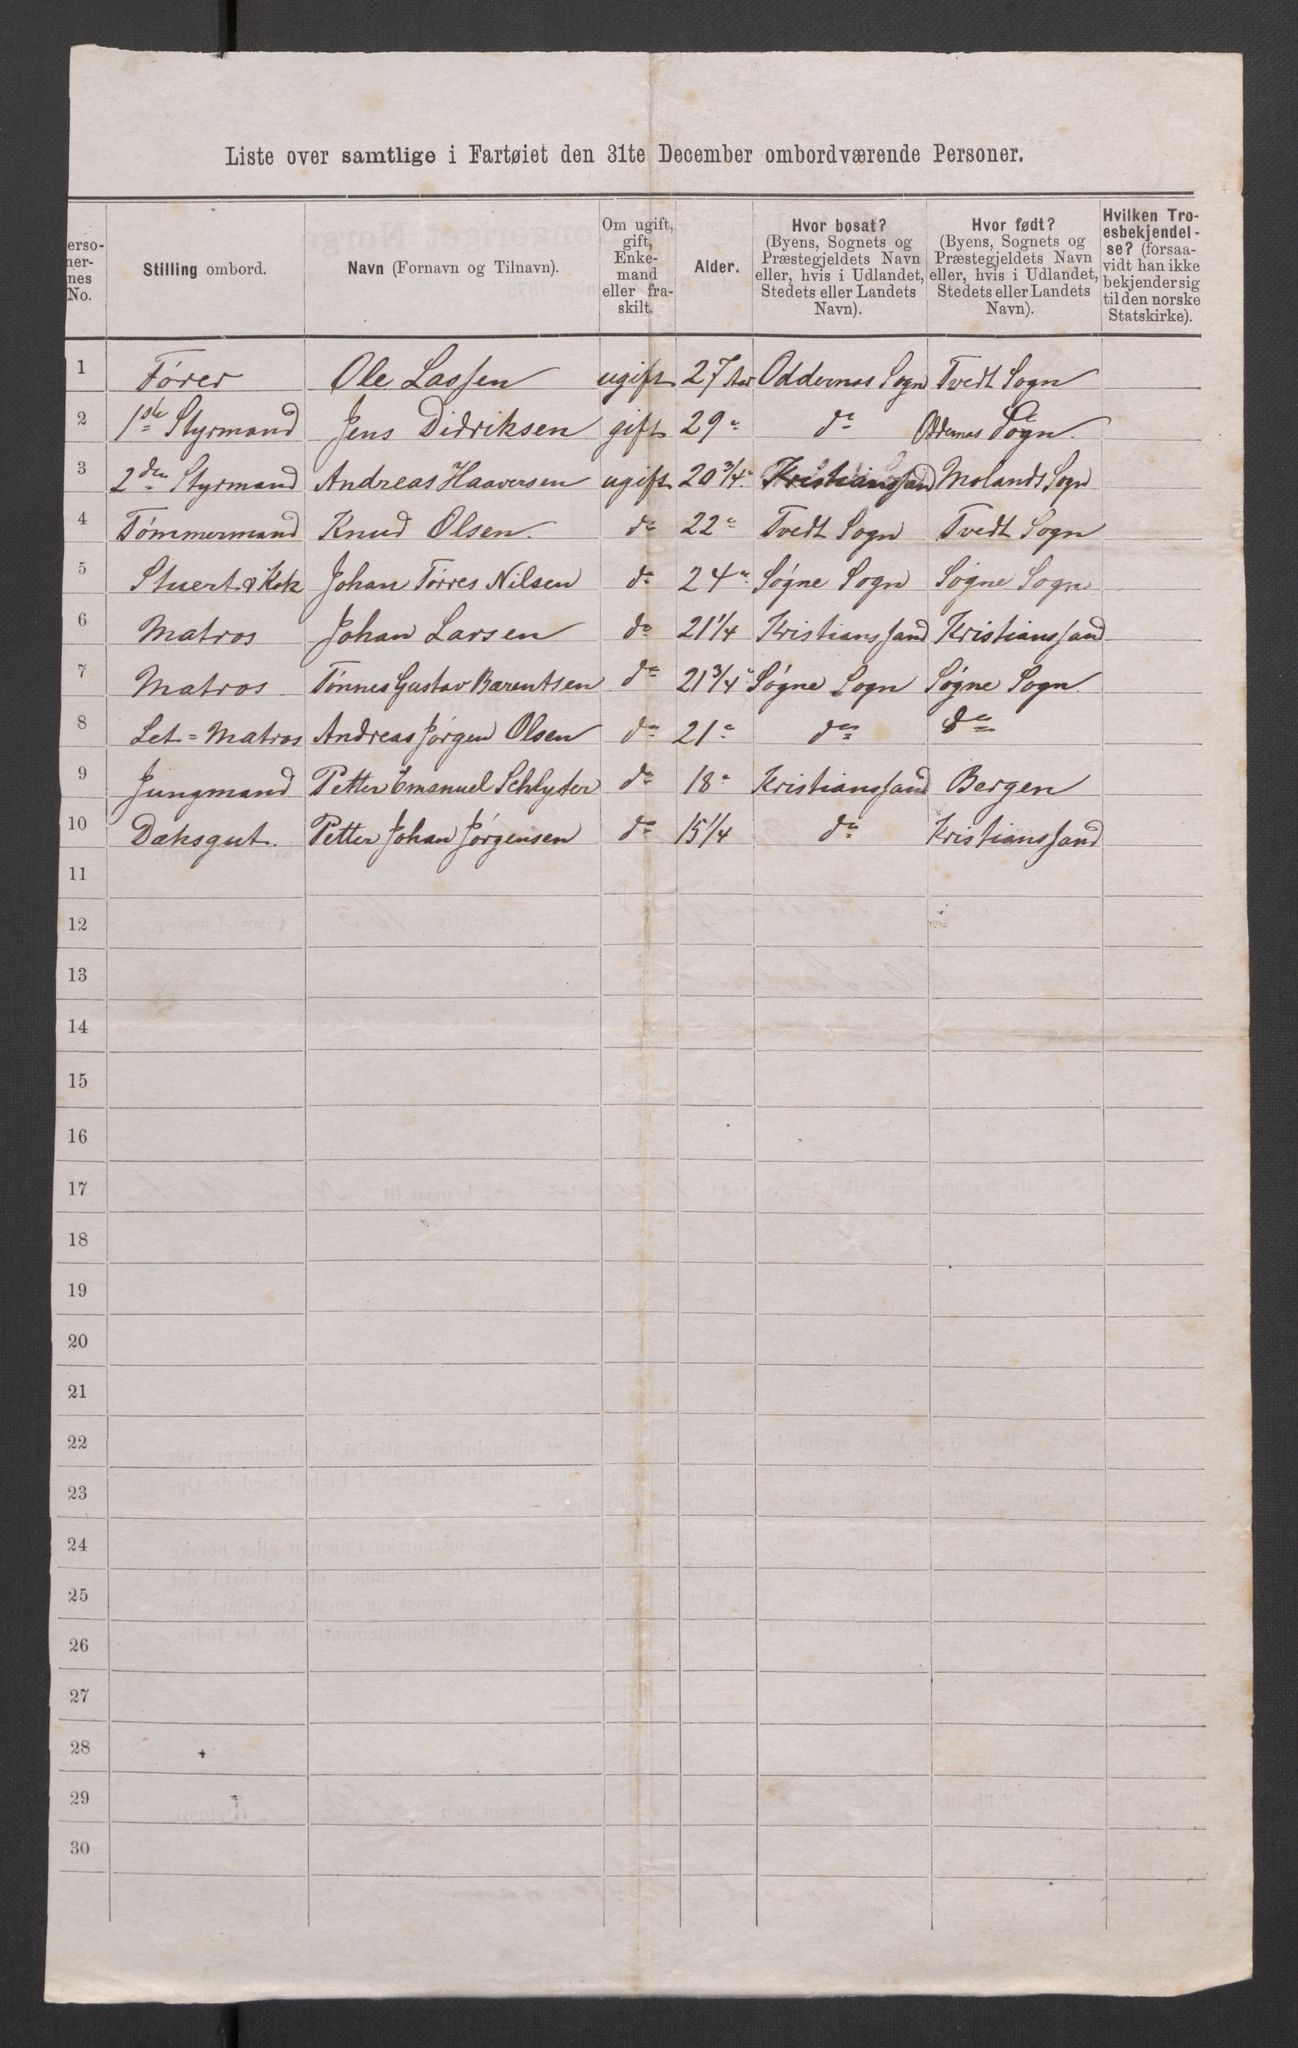 Liste over samtlige i Fartøiet den 31te December ombordværende Personer.
erso-
ner-
nes
No.
Stilling ombord.
Navn (Fornavn og Tilnavn).
Om ugift,
gift,
Enke-
mand
eller fra-
skilt.
Alder.
Hvor bosat?
(Byens, Sognets og
Præstegjeldets Navn
eller, hvis i Udlandet,
Stedets eller Landets
Navn).
Hvor født?
(Byens, Sognets og
Præstegjeldets Navn
eller, hvis i Udlandet,
Stedets eller Landets
Navn).
Hvilken Tro-
esbekjendel-
se? (forsaa-
vidt han ikke
bekjender sig
til den norske
Statskirke).
1 Fører Ole Lassen ugift 27 Aar Oddernæs Sogn Tvedt Sogn
2 1ste Styrmand Jens Didriksen gift 29 " do Oddernæs Sogn.
3 2den Styrmand Andreas Haaversen ugift 20 3/4 " Kristianssand Molands Sogn
4 Tømmermand Knud Olsen. do 22 " Tvedt Sogn Tvedt Sogn
5 Stuert & Kok Johan Tørres Nilsen do 24 " Søgne Sogn Søgne Sogn
6 Matros Johan Larsen do 21 1/4 Kristianssand Kristianssand
7 Matros Tønnes Gustav Barentsen do 21 3/4 " Søgne Sogn Søgne Sogn.
8 Let=Matros Andreas Jørgen Olsen do 21 " do do
9 Jungmand Petter Emanuel Schlyter do 18 " Kristianssand Bergen
10 Dæksgut. Petter Johan Jørgensen do 15 1/4 do Kristianssand
11
12
13
14
15
16
17
18
19
20
21
22
23
24
25
26
27
28
29
30